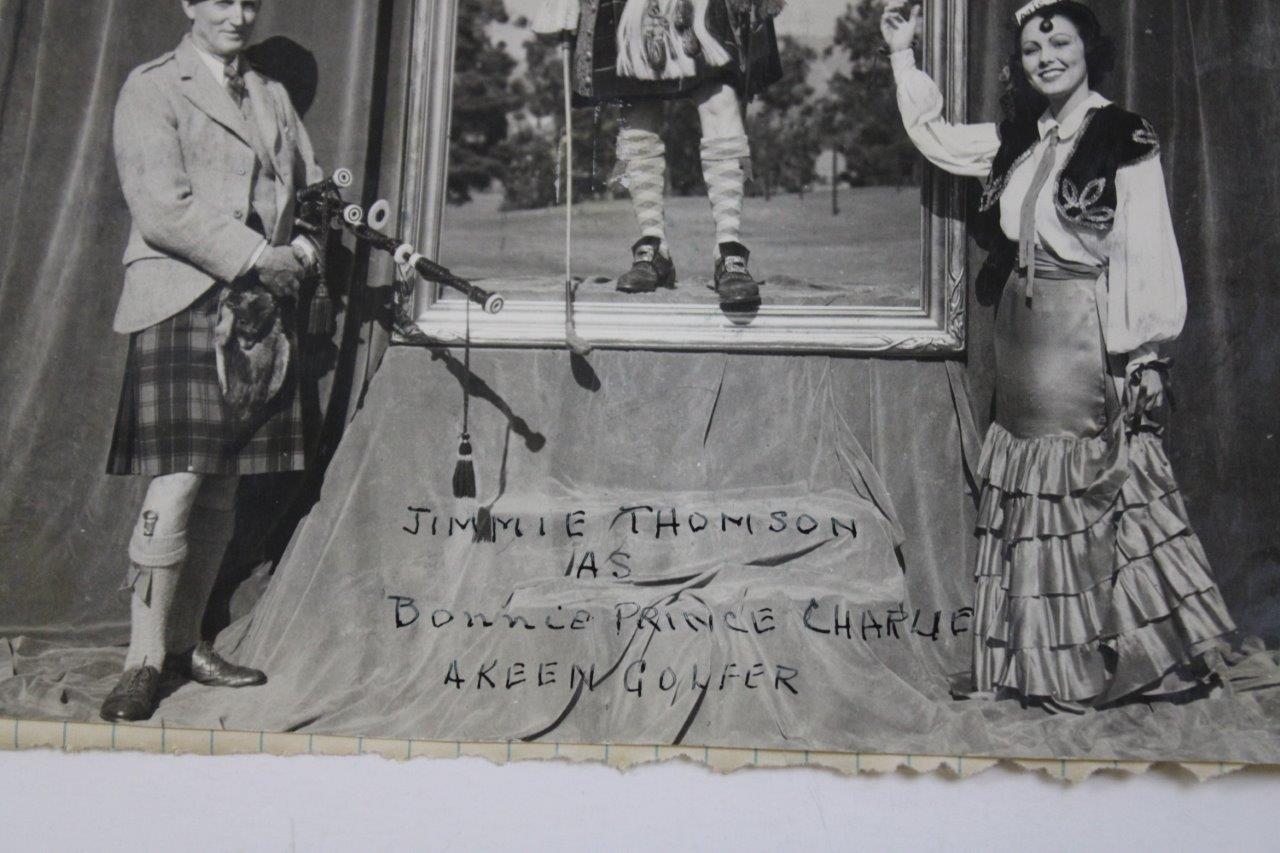 JIMMIE THOMSON
AS
Bonnie PRINCE CHARLIE
A KEEN GOLFER